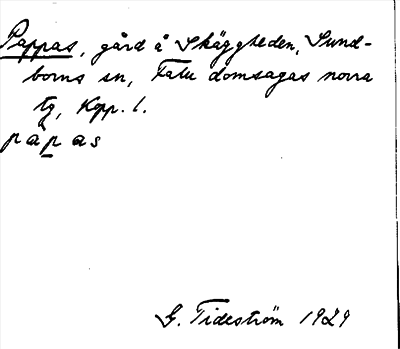 Pappas, gård å Skäggheden, Sund-
borns sn, Falu domsagas norra
tg, Kopp. l.
pàpas
G. Tideström 1929